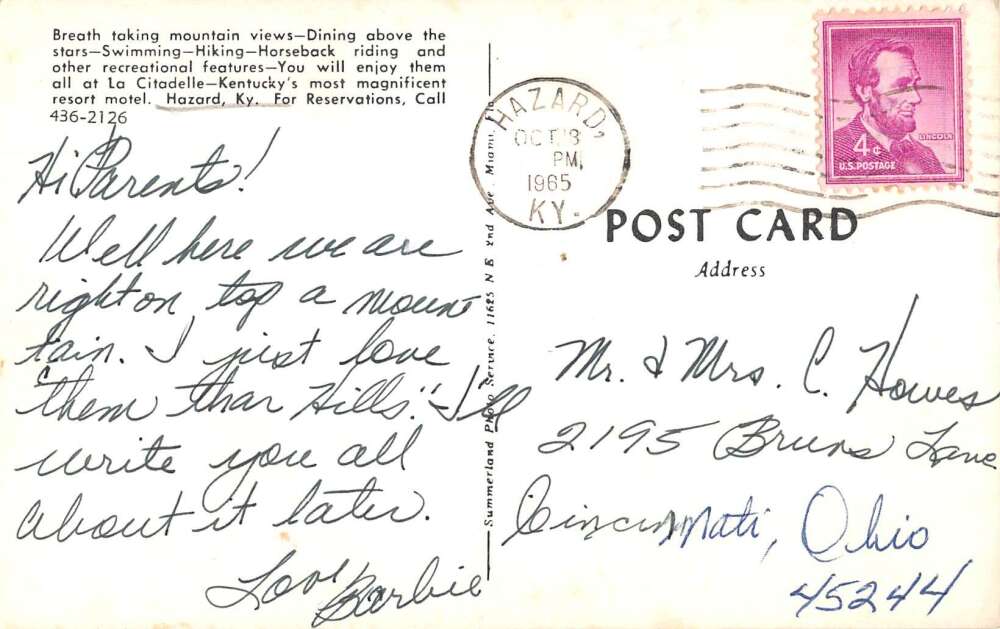 Breath taking mountain views—Dining above the
stars—Swimming—Hiking—Horseback riding and
other recreational features—You will enjoy them
all at La Citadelle—Kentucky's most magnificent
resort motel. Hazard, Ky. For Reservations, Call
436-2126
Hi Parents!
Well here we are
right on top a moun
tain. I just love
"them thar hills." I'll
write you all
about it later.
Love Barbie
Summerland Photo Service, 11625 N E 2nd Ave, Miami, Fla
HAZARD,
OCT 3
PM,
1965
KY.
4¢
LINCOLN
U.S. POSTAGE
POST CARD
Address
Mr. & Mrs. C. Howes
2195 Bruns Lane
Cincinnati, Ohio
45244